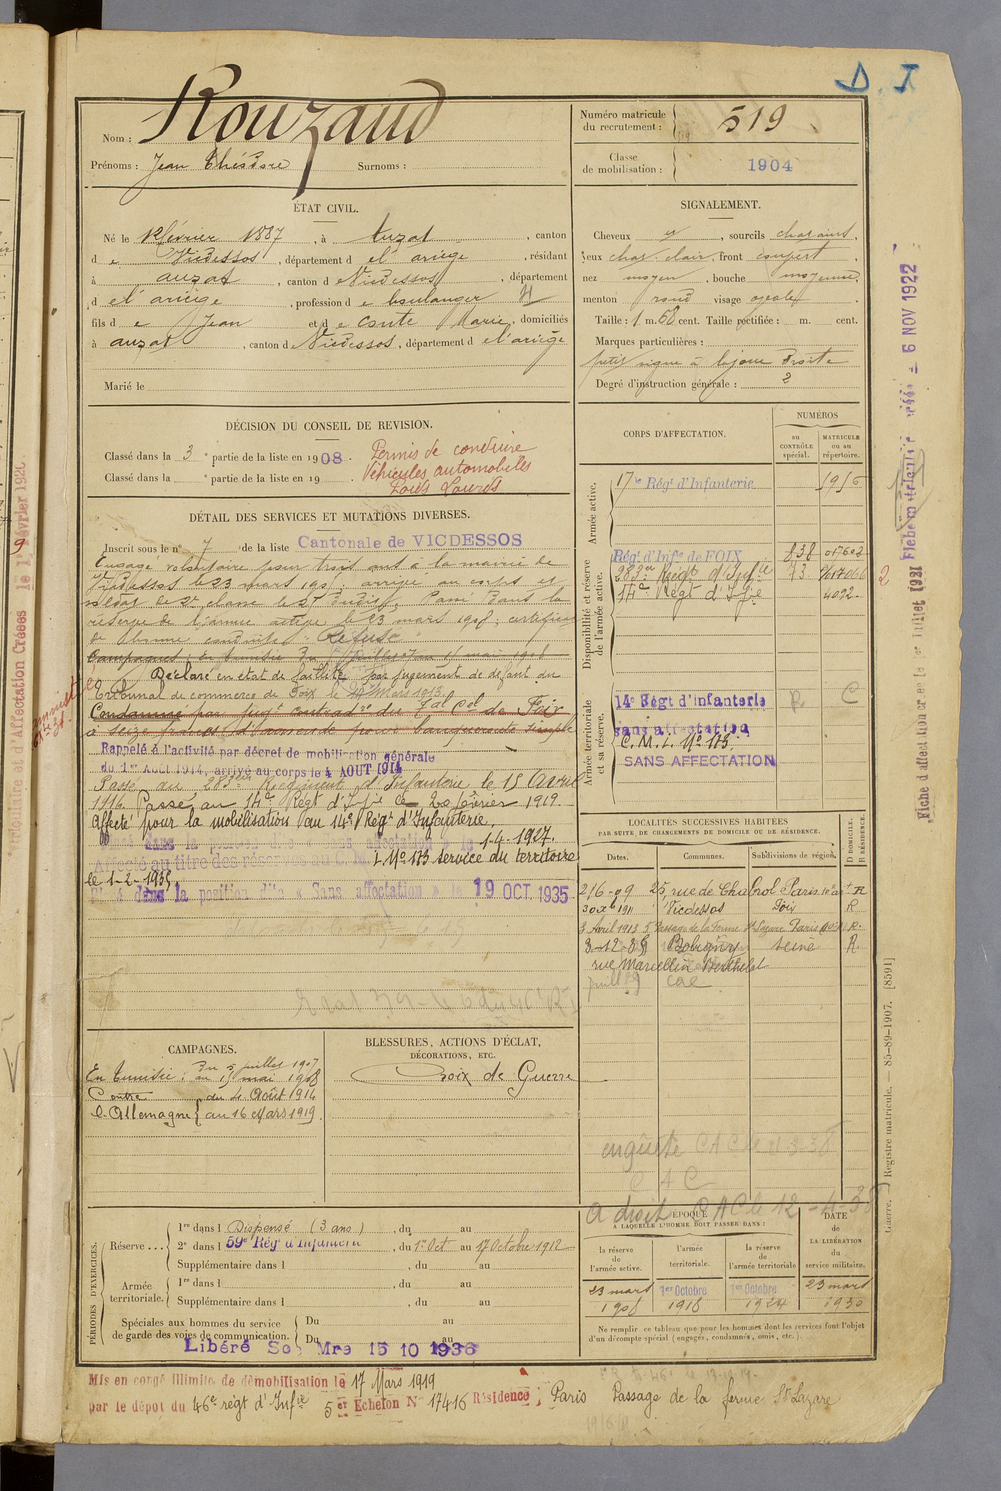 D. I
Nom : Rouzaud
Prénoms : Jean Théodore Surnoms :
Numéro matricule du recrutement : 519
Classe de mobilisation : 1904
ÉTAT CIVIL.
Né le 12 février 1887, à Auzat, canton
de Vicdessos, département de l'ariège, résidant
à auzat, canton de Vicdessos, département
de l'ariège, profession de boulanger
fils de Jean et de Conte Marie, domiciliés
à auzat, canton de Vicdessos, département de l'ariège
Marié le
SIGNALEMENT.
Cheveux et, sourcils chatains,
yeux chat. clair, front couvert
nez moyen, bouche moyenne,
menton rond visage ovale
Taille : 1 m. 68 cent. Taille rectifiée : m. cent.
Marques particulières :
petit signe à la joue droite
Degré d'instruction générale : 2
DÉCISION DU CONSEIL DE REVISION.
Classé dans la 3e partie de la liste en 1908.
Classé dans la e partie de la liste en 19 .
Permis de conduire
Véhicules automobiles
Poids Lourds
DÉTAIL DES SERVICES ET MUTATIONS DIVERSES.
Inscrit sous le n° 7 de la liste Cantonale de VICDESSOS
Engagé volontaire pour trois ans à la mairie de
Vicdessos le 23 mars 1905, arrivé au corps et
soldat de 2e classe le dit. Passé dans la
réserve de l'armée active le 23 mars 1908; certificat
de bonne conduite "Refusé"
Campagnes : en Tunisie du 5 juillet au 15 mai 1908
Déclaré en état de faillite par jugement de défaut du
Tribunal de commerce de Foix le 19 Mars 1913.
Condamné par jugt contradre du Tal Cel de Foix
à seize francs d'amende pour banqueroute simple
Rappelé à l'activité par décret de mobilisation générale
du 1er Août 1914, arrivé au corps le 4 AOUT 1914
Passé au 283e Régiment d'Infanterie le 15 Avril
1916. Passé au 14e Régt d'Infie le 20 février 1919.
Affecté pour la mobilisation au 14e Régt d'Infanterie
dans la position sans affectation le 1-4-1927.
Affecté au titre des réserves au C.M.I. N° 173 service du territoire
le 1-2-1935
dans la position dite « Sans affectation » le 19 OCT. 1935
CORPS D'AFFECTATION.
NUMÉROS
au CONTRÔLE spécial.
MATRICULE ou au répertoire.
Armée active.
17e Régt d'Infanterie
Disponibilité et réserve de l'armée active.
Régt d'Infie de FOIX 838
283e Régt d'Infie 73
14e Régt d'Infie 4092
Armée territoriale et sa réserve.
14e Régt d'Infanterie R C
sans affectation
C. M. I. N° 173.
SANS AFFECTATION
LOCALITÉS SUCCESSIVES HABITÉES
PAR SUITE DE CHANGEMENTS DE DOMICILE OU DE RÉSIDENCE.
Dates. Communes. Subdivisions de région. D DOMICILE. R RÉSIDENCE.
2/6-09 25, rue de Chabrol Paris 10e art R
30 xbre 1911 Vicdessos Foix R
3 Avril 1913 5 Passage de la Ferme St Lazare Paris R.
3-12-35 Bobigny Seine R.
rue Marcellin Berthelot
CAMPAGNES.
En Tunisie : du 5 juillet 1907
au 15 mai 1908
Contre du 4 Août 1914
l'Allemagne au 16 Mars 1919.
BLESSURES, ACTIONS D'ÉCLAT,
DÉCORATIONS, ETC.
Croix de Guerre
enquête CAC le
CAC
A droit CAC le 12-4-38
PÉRIODES D'EXERCICES.
Réserve ...
1re dans l Dispensé (3 ans), du au
2e dans l 59e Régt d'Infanterie, du 1er Oct au 17 Octobre 1912
Supplémentaire dans l , du au
Armée territoriale.
1re dans l , du au
Supplémentaire dans l , du au
Spéciales aux hommes du service
de garde des voies de communication.
Du au
Du au
Libéré Sce Mre 15 10 1936
ÉPOQUE
À LAQUELLE L'HOMME DOIT PASSER DANS :
la réserve de l'armée active. l'armée territoriale. la réserve de l'armée territoriale.
DATE de LA LIBÉRATION du service militaire.
23 mars 1908 1er Octobre 1918 1er Octobre 1924 23 mars 1930
Ne remplir ce tableau que pour les hommes dont les services font l'objet
d'un décompte spécial (engagés, condamnés, omis, etc.).
Mis en congé illimité de démobilisation le 17 Mars 1919
par le dépôt du 46e régt d'Infie 5e Echelon N° 17416 Résidence ; Paris Passage de la ferme St Lazare
Guerre. Registre matricule. — 85-89-1907. [8591]
6 NOV 1922